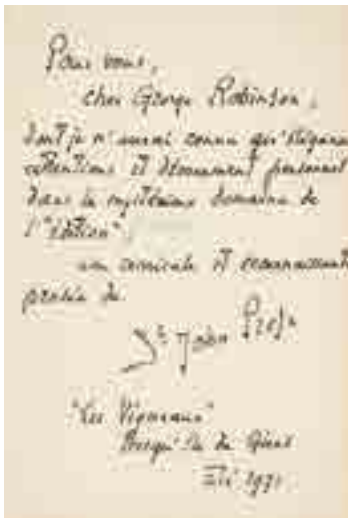 Pour vous,
cher George Robinson,
dont je n'aurai connu qu'élégance
attentions et dévouement personnel
dans le mystérieux domaine de
l'"édition"
un amicale et reconnaissante
pensée de
St John Perse
"Les Vigneaux"
Presqu'île de Giens
Eté 1971